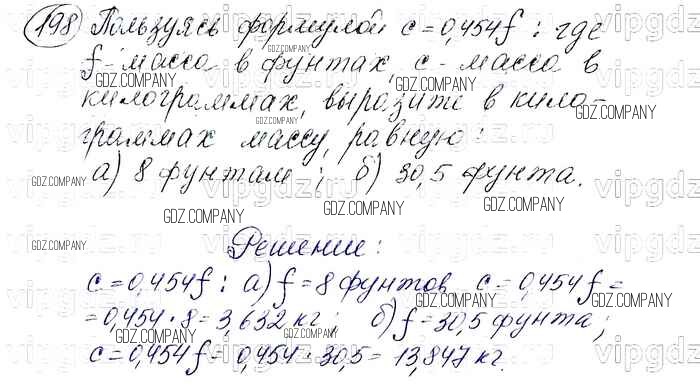 198 Пользуясь формулой c=0,454f : где
f - масса в фунтах, c - масса в
килограммах, выразите в кило-
граммах массу, равную:
а) 8 фунтам ; б) 30,5 фунта.
Решение:
c=0,454f : а) f=8 фунтов c=0,454f=
=0,454·8=3,632 кг ; б) f=30,5 фунта ;
c=0,454f=0,454·30,5=13,847 кг.